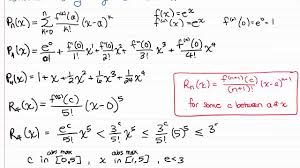 Pₙ(x) = Σ_{k=0}^{n} f⁽ᵏ⁾(a)/k! (x-a)ᵏ
f(x)=eˣ
f⁽ⁿ⁾(x)=eˣ
f⁽ⁿ⁾(0)=e⁰=1
P₄(x) = e⁰/0! + f'(0)/1! x + f''(0)/2! x² + f'''(0)/3! x³ + f⁽⁴⁾(0)/4! x⁴
P₄(x) = 1 + x + ½x² + 1/6 x³ + 1/24 x⁴
Rₙ(x) = f⁽ⁿ⁺¹⁾(c)/(n+1)! (x-a)ⁿ⁺¹
for some c between a & x
R₄(x) = f⁽⁵⁾(c)/5! (x-0)⁵
R₄(x) = eᶜ/5! x⁵ ≤ 3ᶜ/5! x⁵ ≤ 3⁵/5! (5)⁵ ≤ 3⁵
abs max
abs max
c in [0,.5] x in [0,.5], e<3